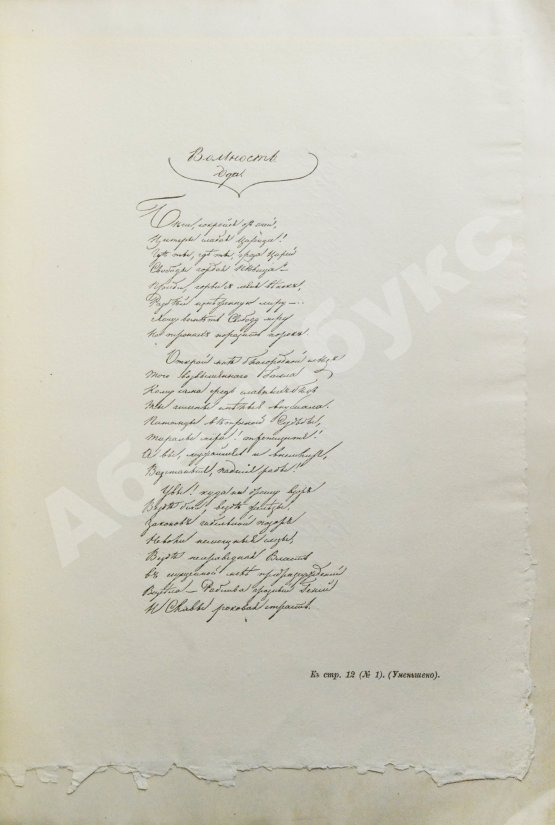 Вольность
Ода
Бѣги, сокройся отъ очей,
Цитеры слабая Царица!
Гдѣ ты, гдѣ ты, гроза Царей
Свободы гордая Пѣвица? —
Приди, сорви съ меня вѣнокъ,
Разбей изнѣженную лиру —..
Хочу воспѣть Свободу миру
На тронахъ поразить порокъ.
Открой мнѣ благородный слѣдъ
Того возвышеннаго Галла
Кому сама средь славныхъ бѣдъ
Ты гимны смѣлые внушала.
Питомцы вѣтреной Судьбы,
Тираны міра! трепещите!
А вы, мужайтесь и внемлите,
Возстаньте, падшіе рабы!
Увы! куда ни брошу взоръ
Вездѣ бичи, вездѣ желѣзы,
Законовъ гибельной позоръ
Неволи немощныя слезы;
Вездѣ неправедная Власть
Въ сгущенной мглѣ предразсужденій
Возсѣла — Рабства грозный Геній
И Славы роковая страсть.
Къ стр. 12 (№ 1). (Уменьшено).